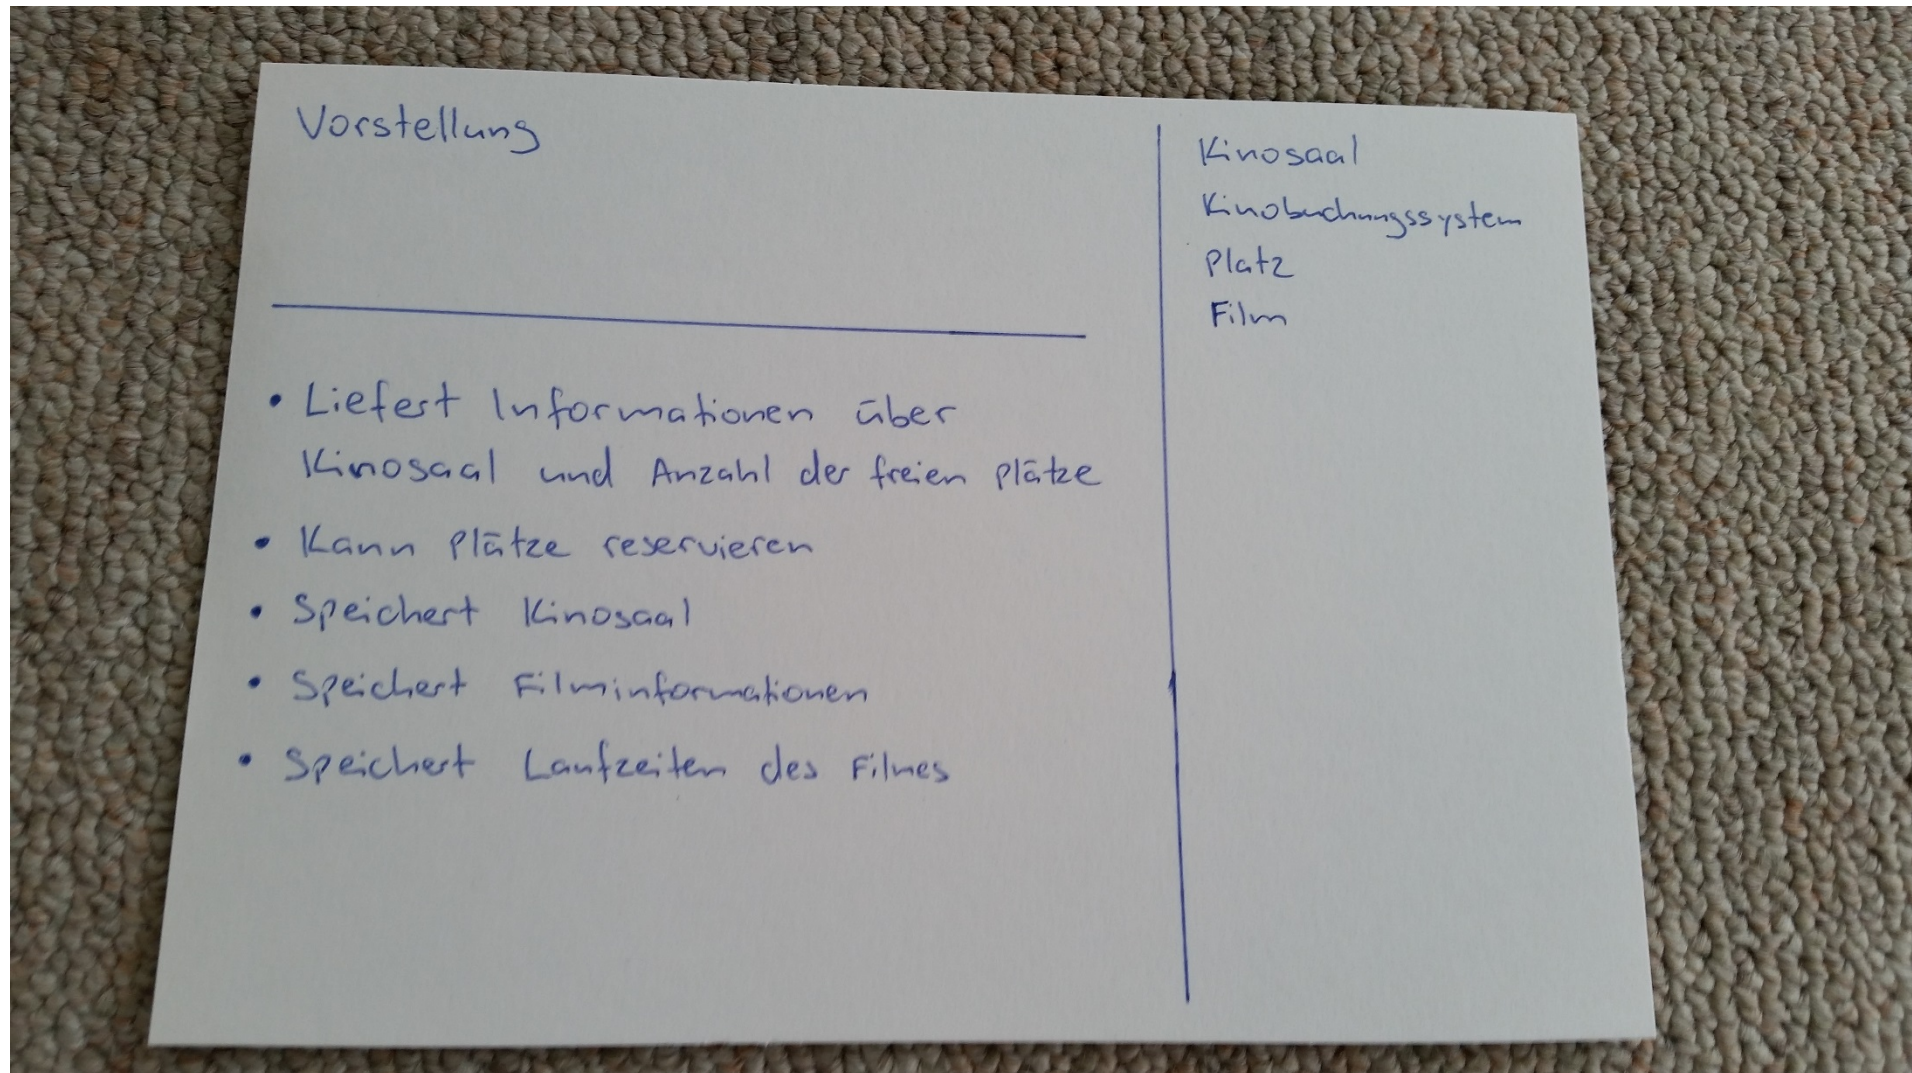 Vorstellung
• Liefert Informationen über
Kinosaal und Anzahl der freien Plätze
• Kann Plätze reservieren
• Speichert Kinosaal
• Speichert Filminformationen
• Speichert Laufzeiten des Filmes
Kinosaal
Kinobuchungssystem
Platz
Film